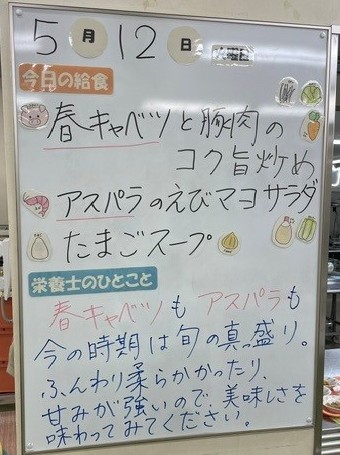 5月12日 火曜日
今日の給食
春キャベツと豚肉の
コク旨炒め
アスパラのえびマヨサラダ
たまごスープ
栄養士のひとこと
春キャベツもアスパラも
今の時期は旬の真っ盛り。
ふんわり柔らかかったり、
甘みが強いので、美味しさを
味わってみてください。